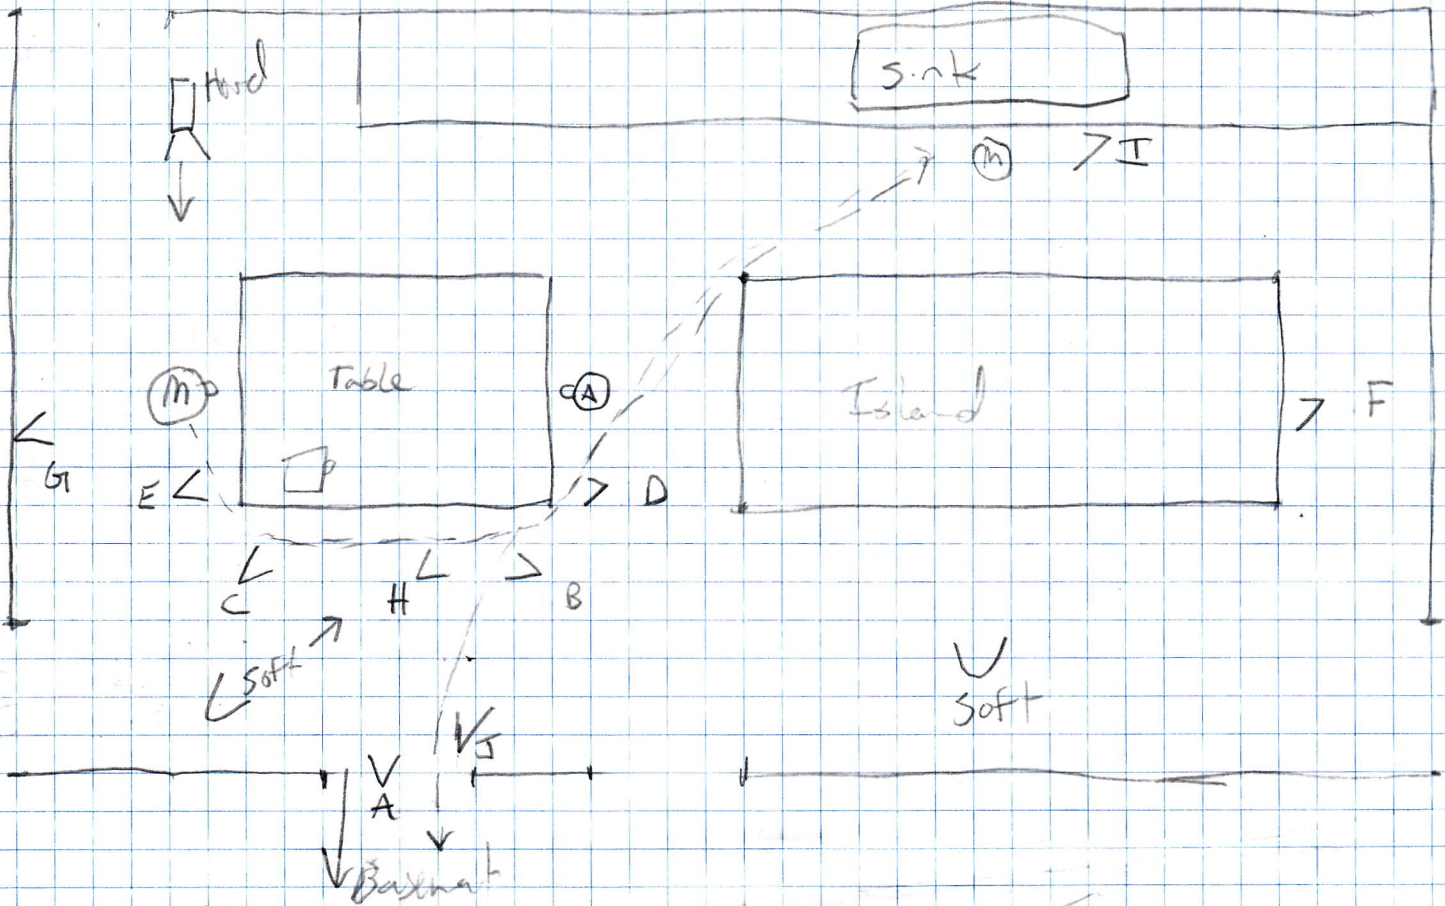 Hard
Sink
m
I
Table
m
A
Island
F
G
E
D
C
H
B
Soft
Soft
J
A
Basmat